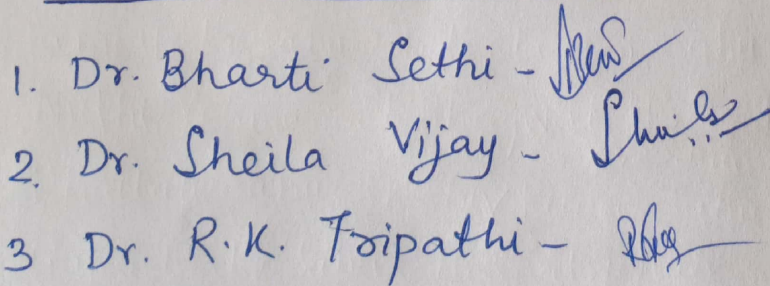 1. Dr. Bharti Sethi -
2. Dr. Sheila Vijay -
3 Dr. R.K. Tripathi -